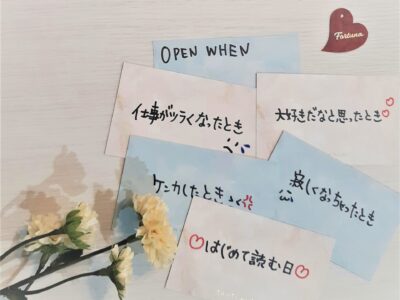 Fortuna
OPEN WHEN
仕事がツラくなったとき
大好きだなと思ったとき
ケンカしたとき
寂しくなっちゃったとき
はじめて読む日